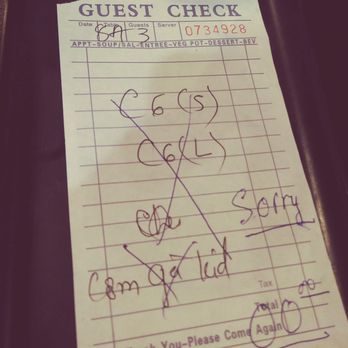 GUEST CHECK
Date Table Guests Server
8A 3 0734928
APPT-SOUP/SAL-ENTREE-VEG POT-DESSERT-BEV
C6(S)
C6(L)
Sorry
Cơm gà kid
Tax
Total 00
You-Please Come Again